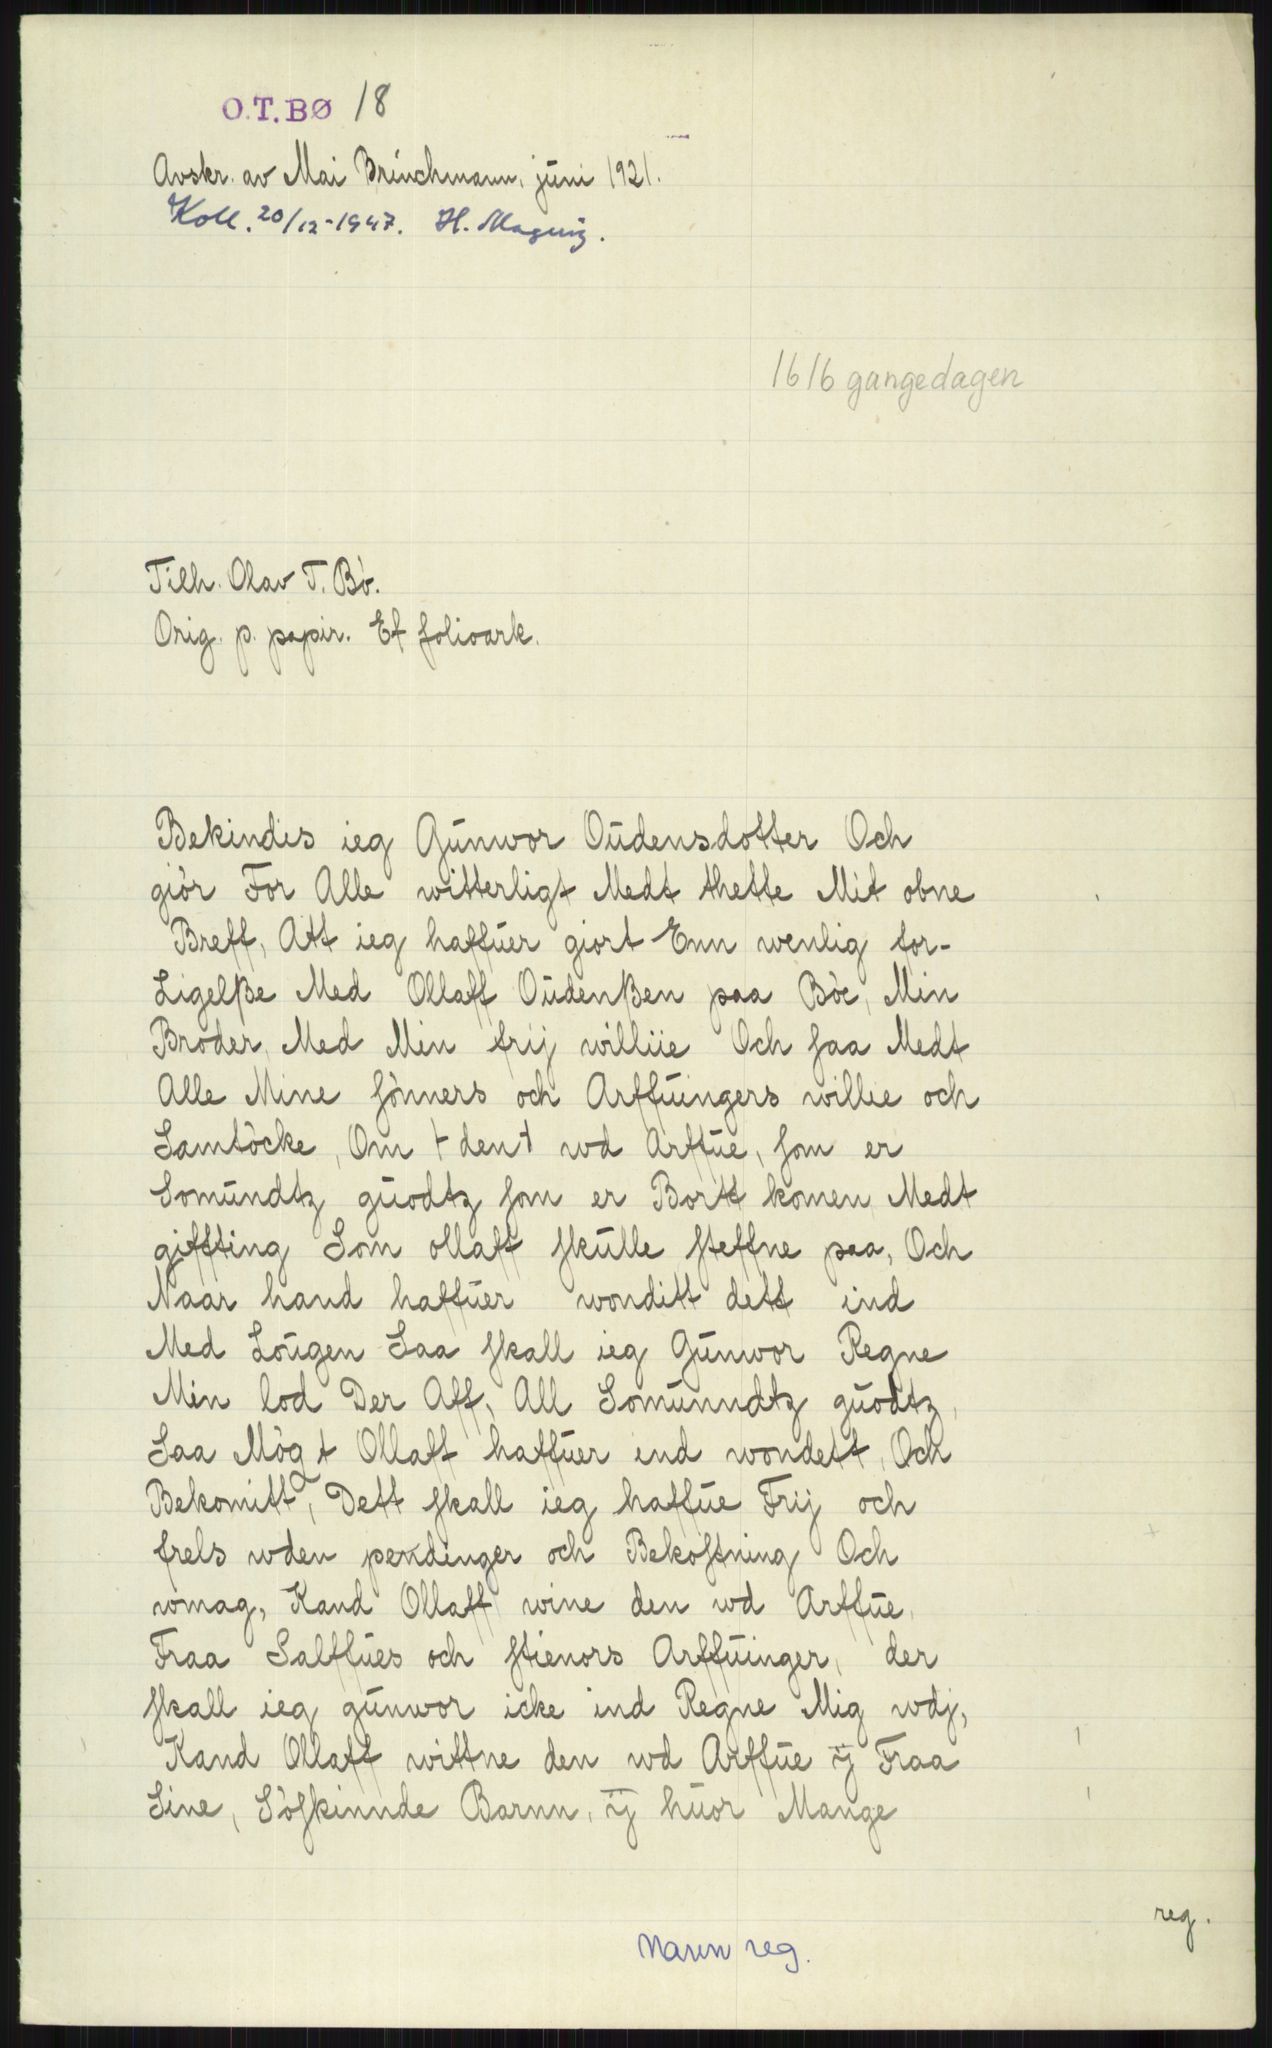 O.T.BØ 18
Avskr. av Mai Brinchmann, juni 1921.
Koll. 20/12-1947. H.
1616 gangedagen
Tilh. Olav T. Bö.
Orig. p. papir. Et folioark.
Bekindis ieg Gunwor Oudensdotter Och
giör For Alle witterligt Medt thette Mit obne
Breff, Att ieg haffuer giort Enn wenlig for-
Ligelße Med Ollaff Oudenßen paa Böe, Min
Broder, Med Min frij williie Och saa Medt
Alle Mine sönners och Arffuingers willie och
Samtöcke, Om + den + wd Arffue, som er
Somundtz guodtz som er Bortt komen Medt
giffting Som ollaff skulle steffne paa, Och
Naar hand haffuer wonditt dett ind
Med Lougen Saa skall ieg Gunwor Regne
Min lod Der Aff, All Somunndtz guodtz,
Saa Mögt Ollaff haffuer ind wondett, Och
Bekomitt, Dett skall ieg haffue Frij och
frels wden pendinger och Bekostning Och
womag, Kand Ollaff wine den wd Arffue,
Fraa Salffues och stienors Arffuinger, der
skall ieg gunwor icke ind Regne Mig wdj,
Kand Ollaff wittne den wd Arffue ÿ Fraa
Sine, Söskinnde Barnn, ÿ huor Mange
reg.
Navn reg.